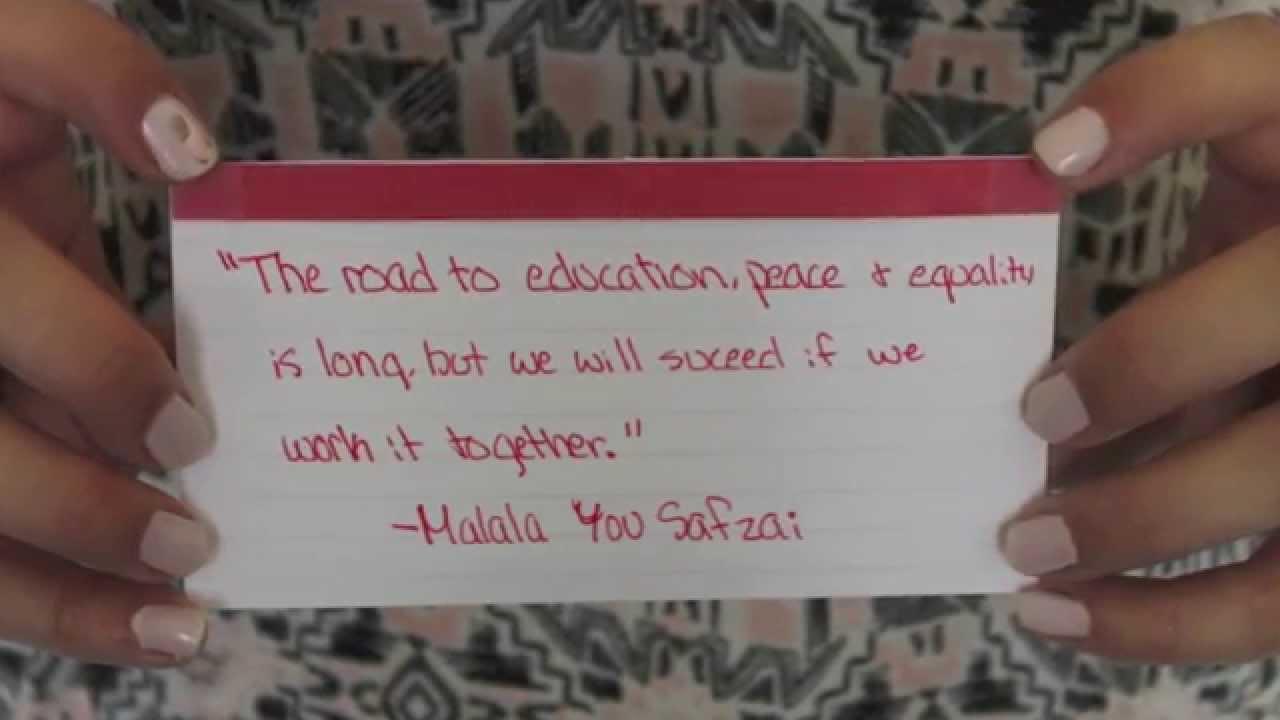 "The road to education, peace & equality
is long, but we will suceed if we
work it together."
-Malala YouSafzai